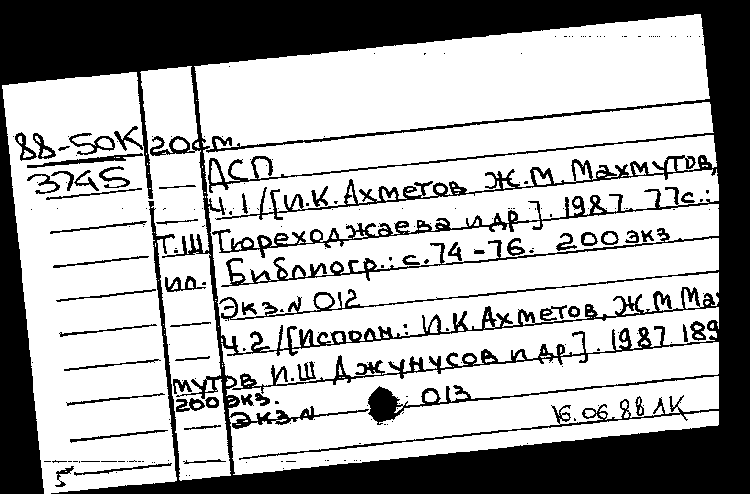 88-50К 20см.
3745
ДСП.
Ч.1/[И.К.Ахметов, Ж.М.Махмутов,
Т.Ш.Тюреходжаева и др.]. 1987. 77с.:
ил. Библиогр.: с.74-76. 200экз.
Экз.N 012
Ч.2/[Исполн.: И.К.Ахметов, Ж.М.Мах
мутов, И.Ш.Джунусов и др.]. 1987 189
200экз.
Экз.N 013
16.06.88 ЛК
5